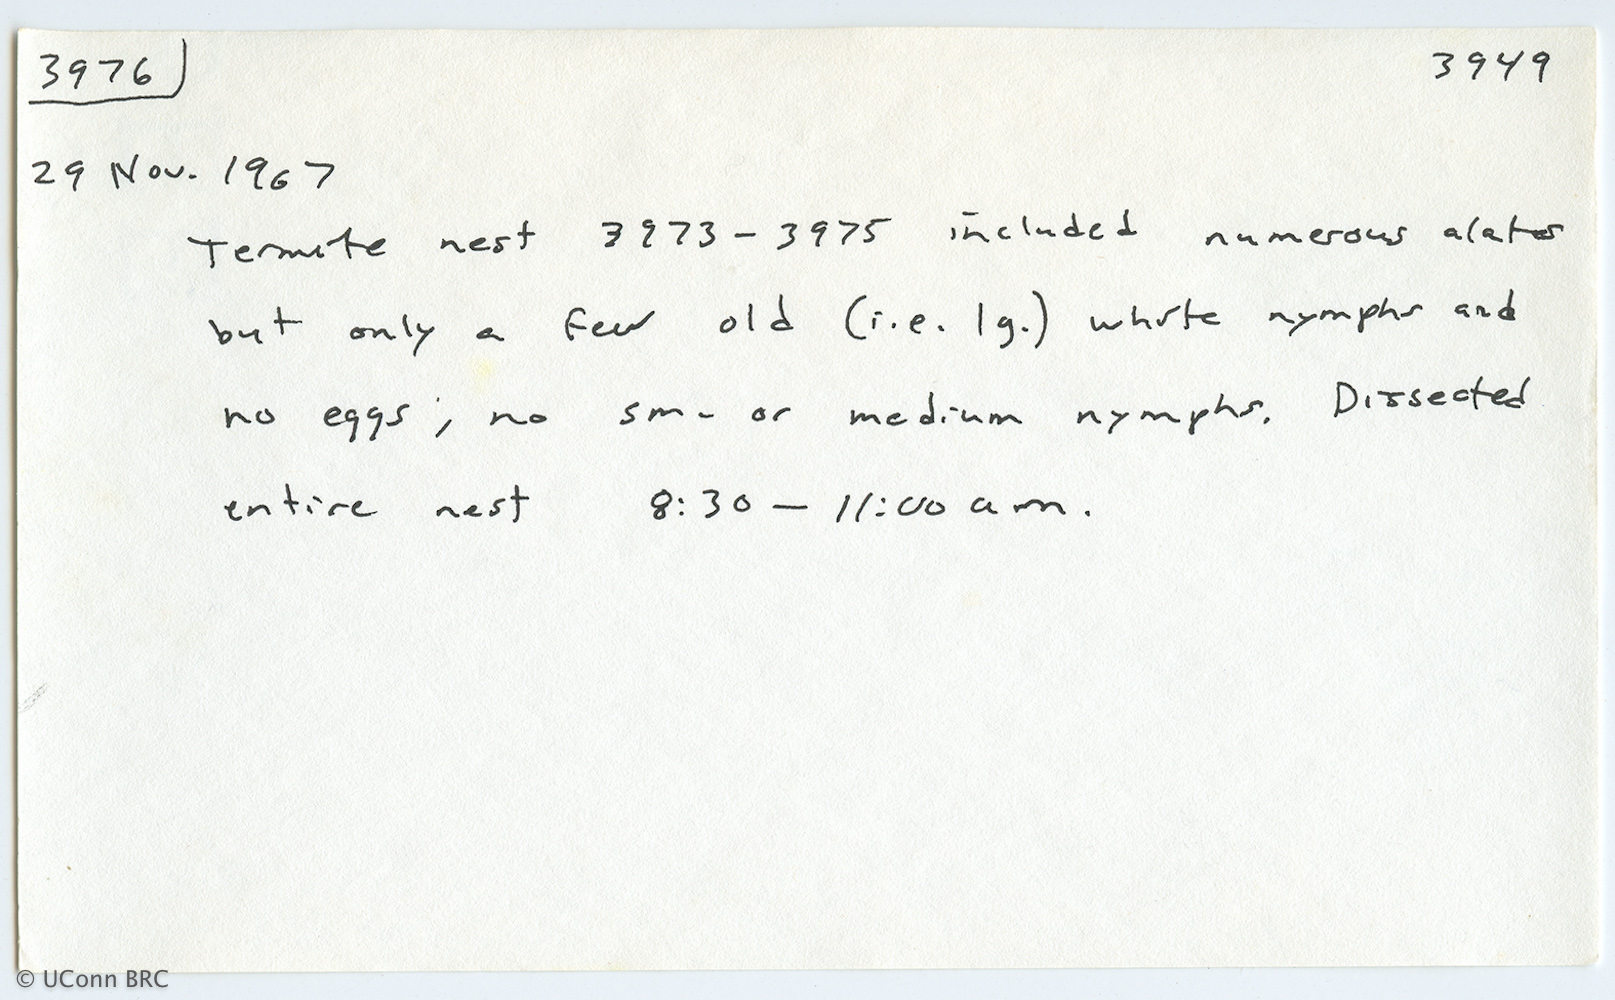 3976
3949
29 Nov. 1967
Termite nest 3973 - 3975 included numerous alates
but only a few old (i.e. lg.) white nymphs and
no eggs; no sm- or medium nymphs. Dissected
entire nest 8:30 - 11:00 am.
© UConn BRC